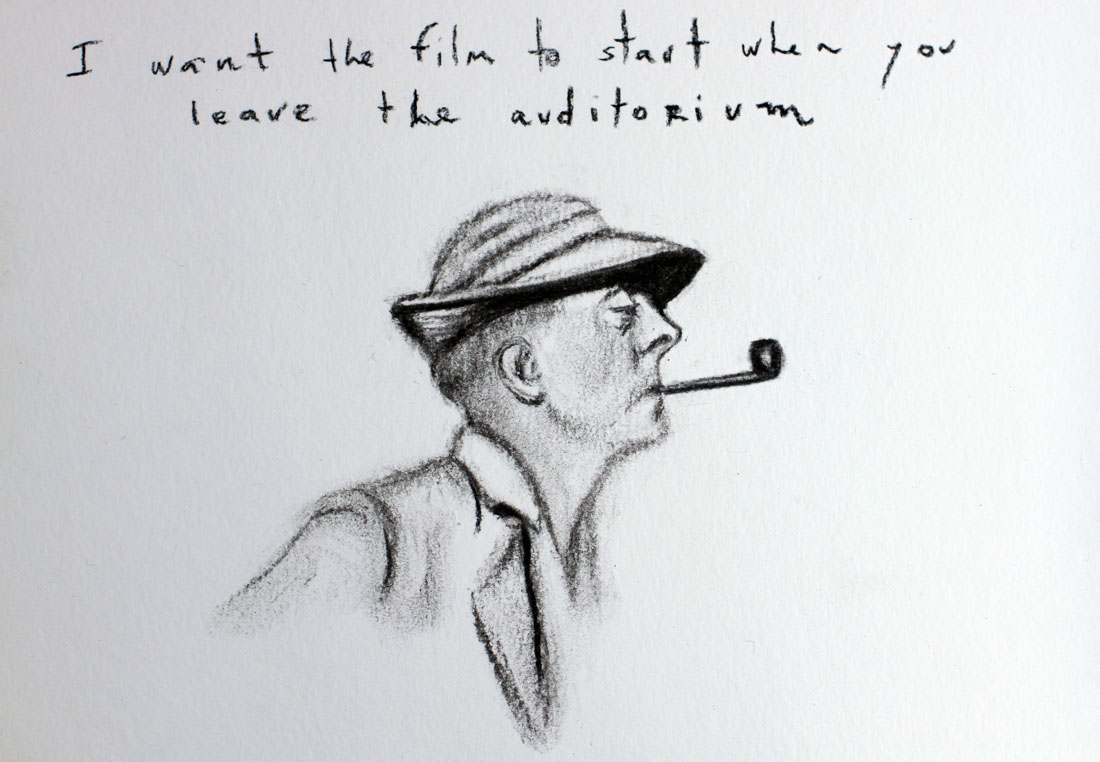 I want the film to start when you
leave the auditorium